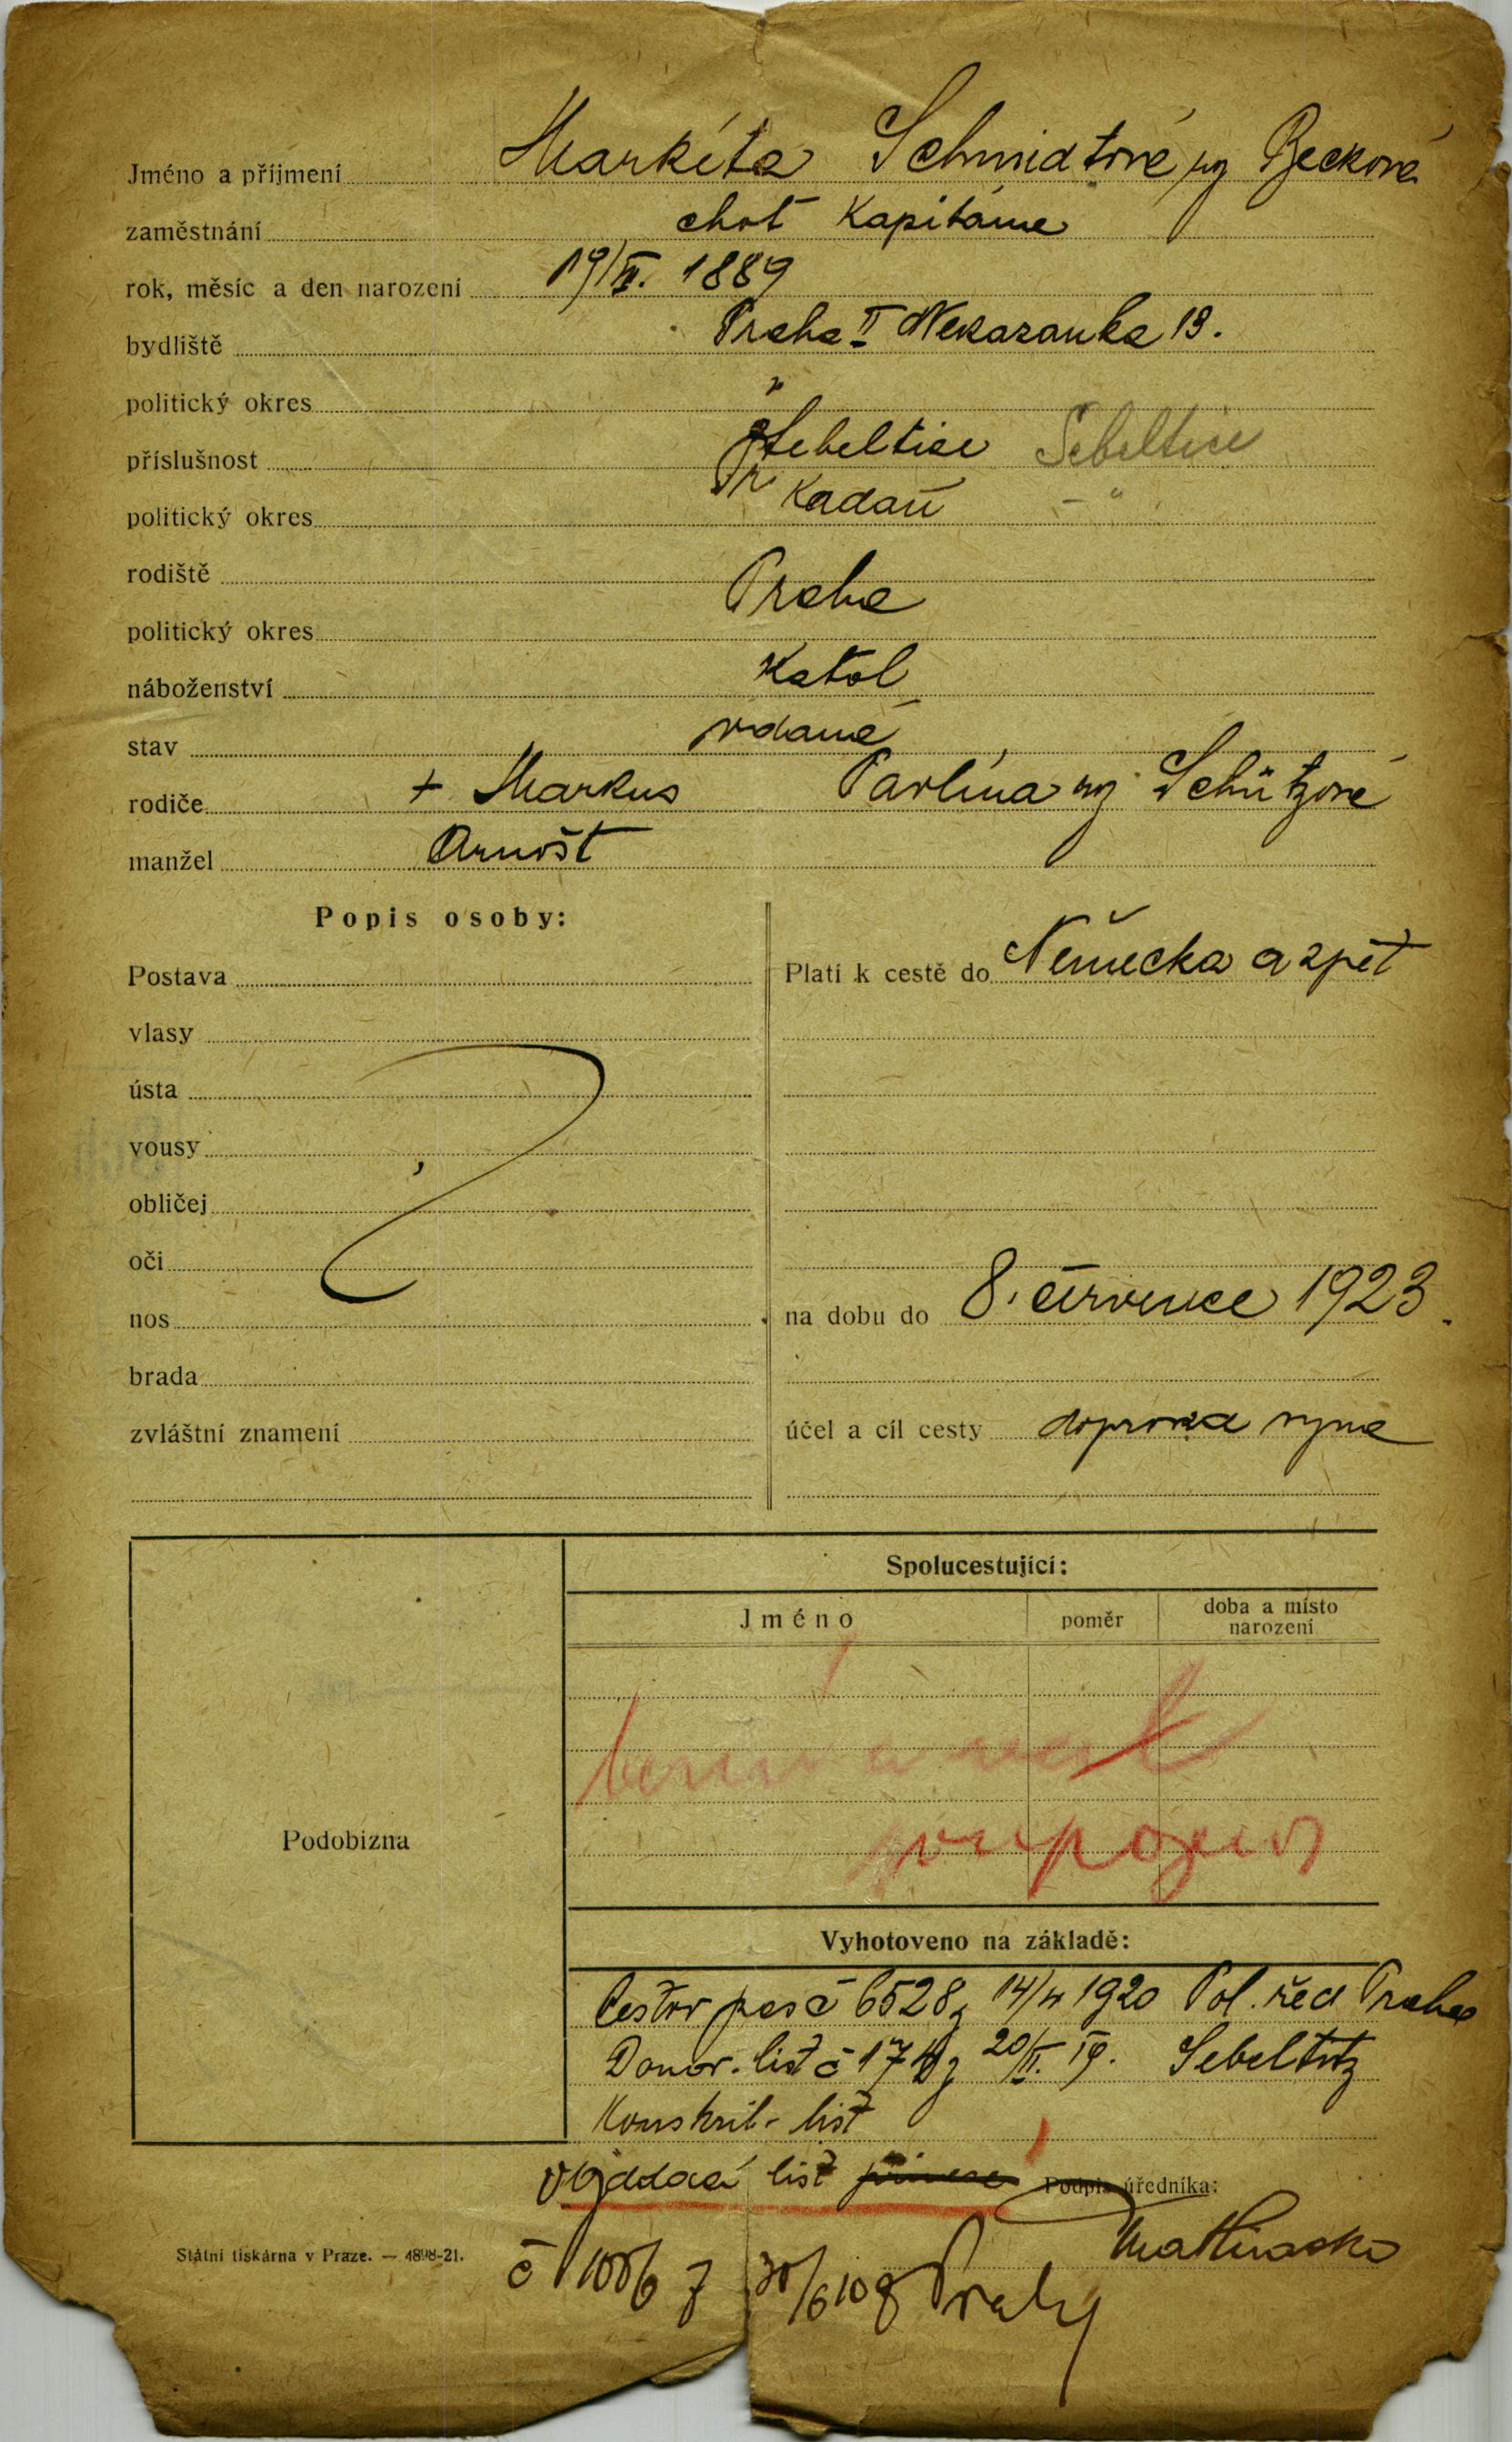 Jméno a příjmení Markéta Schmidtová roz Becková
zaměstnání choť kapitána
rok, měsíc a den narození 1889
bydliště Praha II Nekazanka 19.
politický okres
příslušnost Šebeltice Šebeltice
politický okres Kadaň - "
rodiště Praha
politický okres
náboženství katol
stav vdaná
rodiče + Markus Pavlína roz Schützová
manžel Arnošt
Popis osoby:
Postava
vlasy
ústa
vousy
obličej
oči
nos
brada
zvláštní znamení
Platí k cestě do Německa a zpět
na dobu do 8. července 1923.
účel a cíl cesty doprova syna
Spolucestující:
Jméno poměr doba a místo narození
Podobizna
Vyhotoveno na základě:
Cestov pas č 6528 z 1920 Pol. řed Praha
Domov. list č z 20/II. 19. Sebeltitz
Konskrib. list
oddací list
Podpis úředníka:
Státní tiskárna v Praze. — 4898-21.
č z Prahy